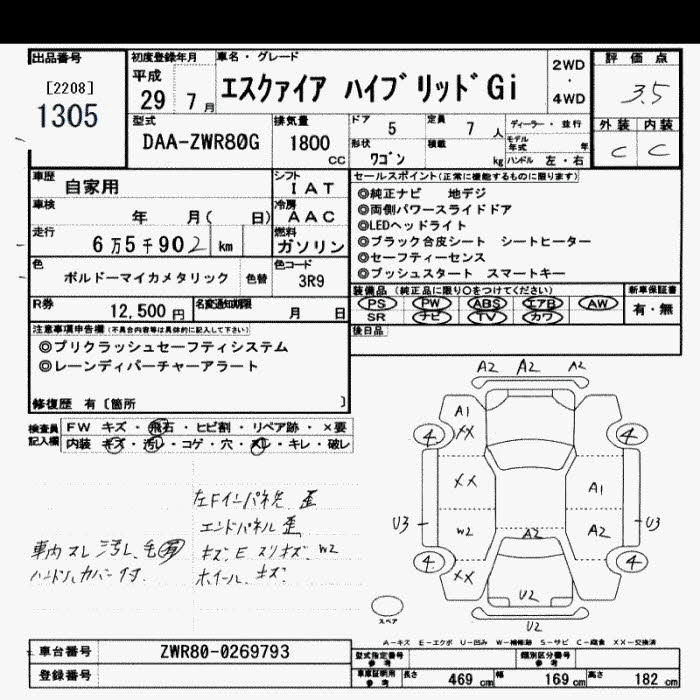 出品番号
[2208]
1305
初度登録年月
平成
29 7月
車名・グレード
エスクァイア ハイブリッドGi
2WD
・
4WD
評価点
3.5
外装 内装
C C
型式
DAA-ZWR80G
排気量
1800
CC
ドア 5
定員 7 人
形状
ワゴン
積載
kg
ディーラー・並行
モデル年式 年
ハンドル 左・右
車歴
自家用
シフト
IAT
車検
年 月( 日)
冷房
AAC
走行
6万5千902 km
燃料
ガソリン
色
ボルドーマイカメタリック
色替
色コード
3R9
R券
12,500円
名変通知期限
月 日
セールスポイント(正常に機能するものに限ります)
◎純正ナビ 地デジ
◎両側パワースライドドア
◎LEDヘッドライト
◎ブラック合皮シート シートヒーター
◎セーフティーセンス
◎プッシュスタート スマートキー
装備品(純正品に限り○をつけてください)
PS PW ABS エアB AW
SR ナビ TV カワ
新車保証書
有・無
後日品
注意事項申告欄(不具合内容等は具体的に記入して下さい)
◎プリクラッシュセーフティシステム
◎レーンディパーチャーアラート
修復歴 有〔箇所 〕
検査員記入欄
FW キズ・飛石・ヒビ割・リペア跡・×要
内装 キズ・汚レ・コゲ・穴・スレ・キレ・破レ
左Fインパネ先 歪
エンドパネル 歪
キズ、E スリキズ W2
ホイール キズ
車内 スレ 汚レ
ハンドルカバー付
A2 A2 A2
A1
XX
4 4
XX
A1
U3 U3
W2
A2
A2
4 4
XX
U2
U2
スペア
A-キズ E-エクボ U-凹み W-補修跡 S-サビ C-腐食 XX-交換済
車台番号
ZWR80-0269793
登録番号
型式指定番号
参考
類別区分番号
参考
車庫証明用
参考
長さ 469 cm
幅 169 cm
高さ 182 cm